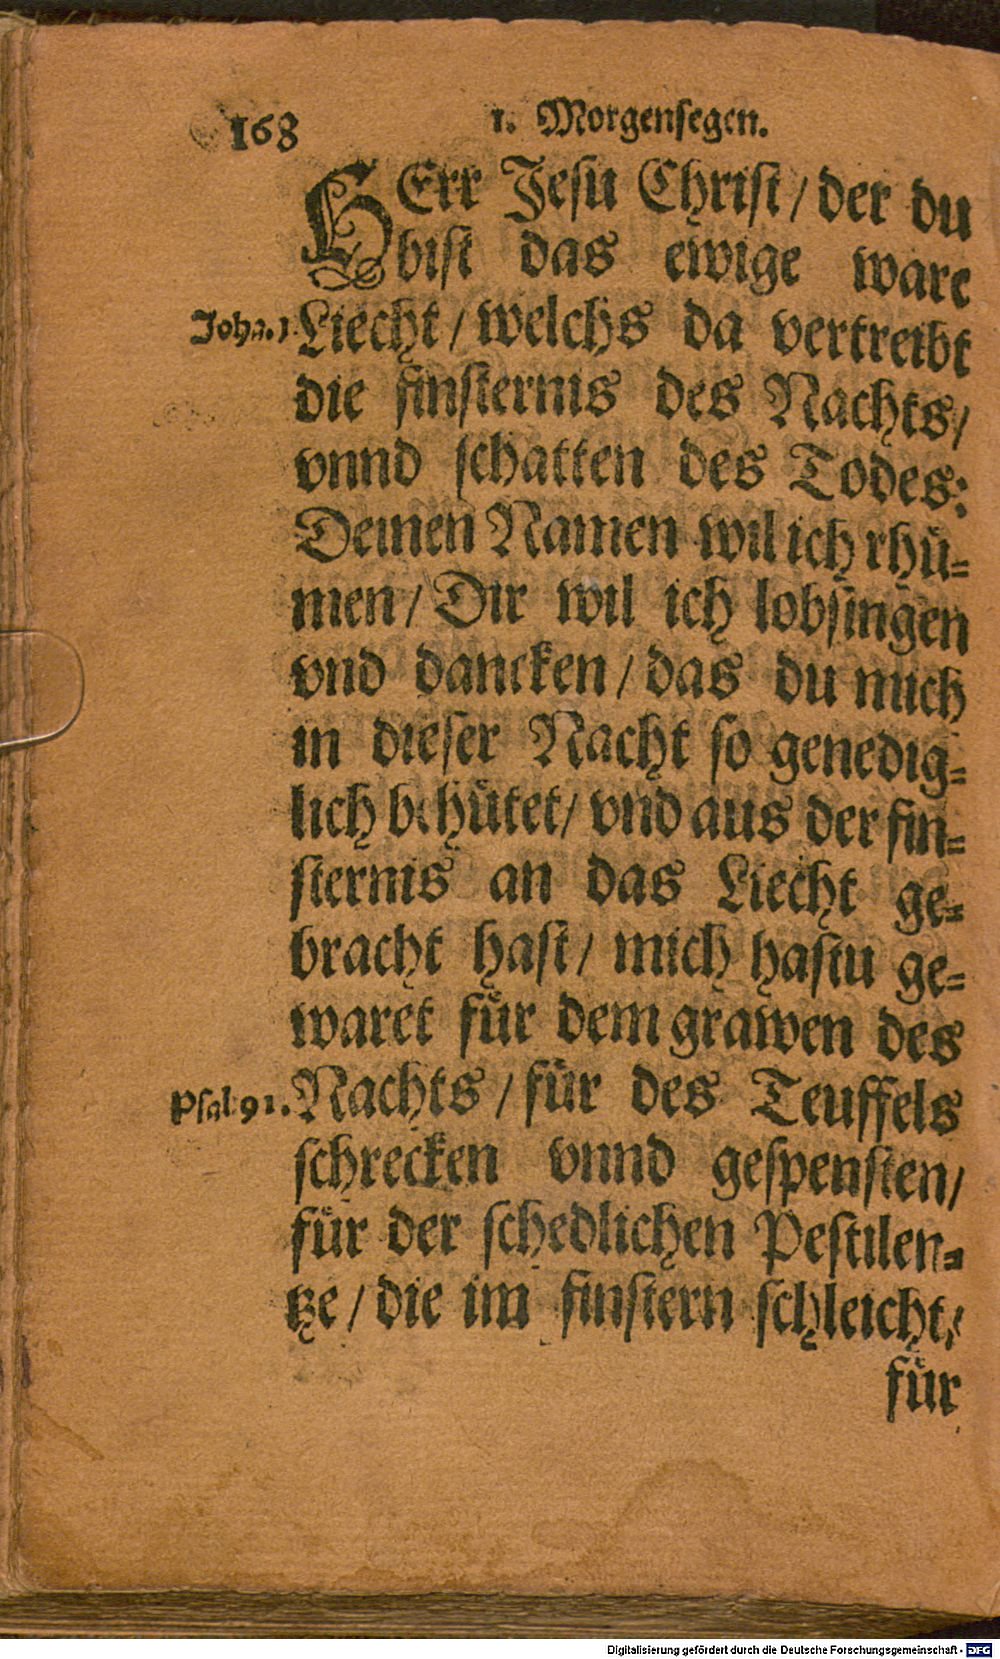 168 1. Morgensegen.
HErr Jesu Christ / der du
bist das ewige ware
Joh. 1. Liecht / welchs da vertreibt
die finsternis des Nachts /
vnnd schatten des Todes:
Deinen Namen wil ich rhü-
men / Dir wil ich lobsingen
vnd dancken / das du mich
in dieser Nacht so genedig-
lich behütet / vnd aus der fin-
sternis an das Liecht ge-
bracht hast / mich hastu ge-
waret für dem grawen des
Psal. 91. Nachts / für des Teuffels
schrecken vnnd gespensten /
für der schedlichen Pestilen-
tze / die im finstern schleicht /
für
Digitalisierung gefördert durch die Deutsche Forschungsgemeinschaft - DFG